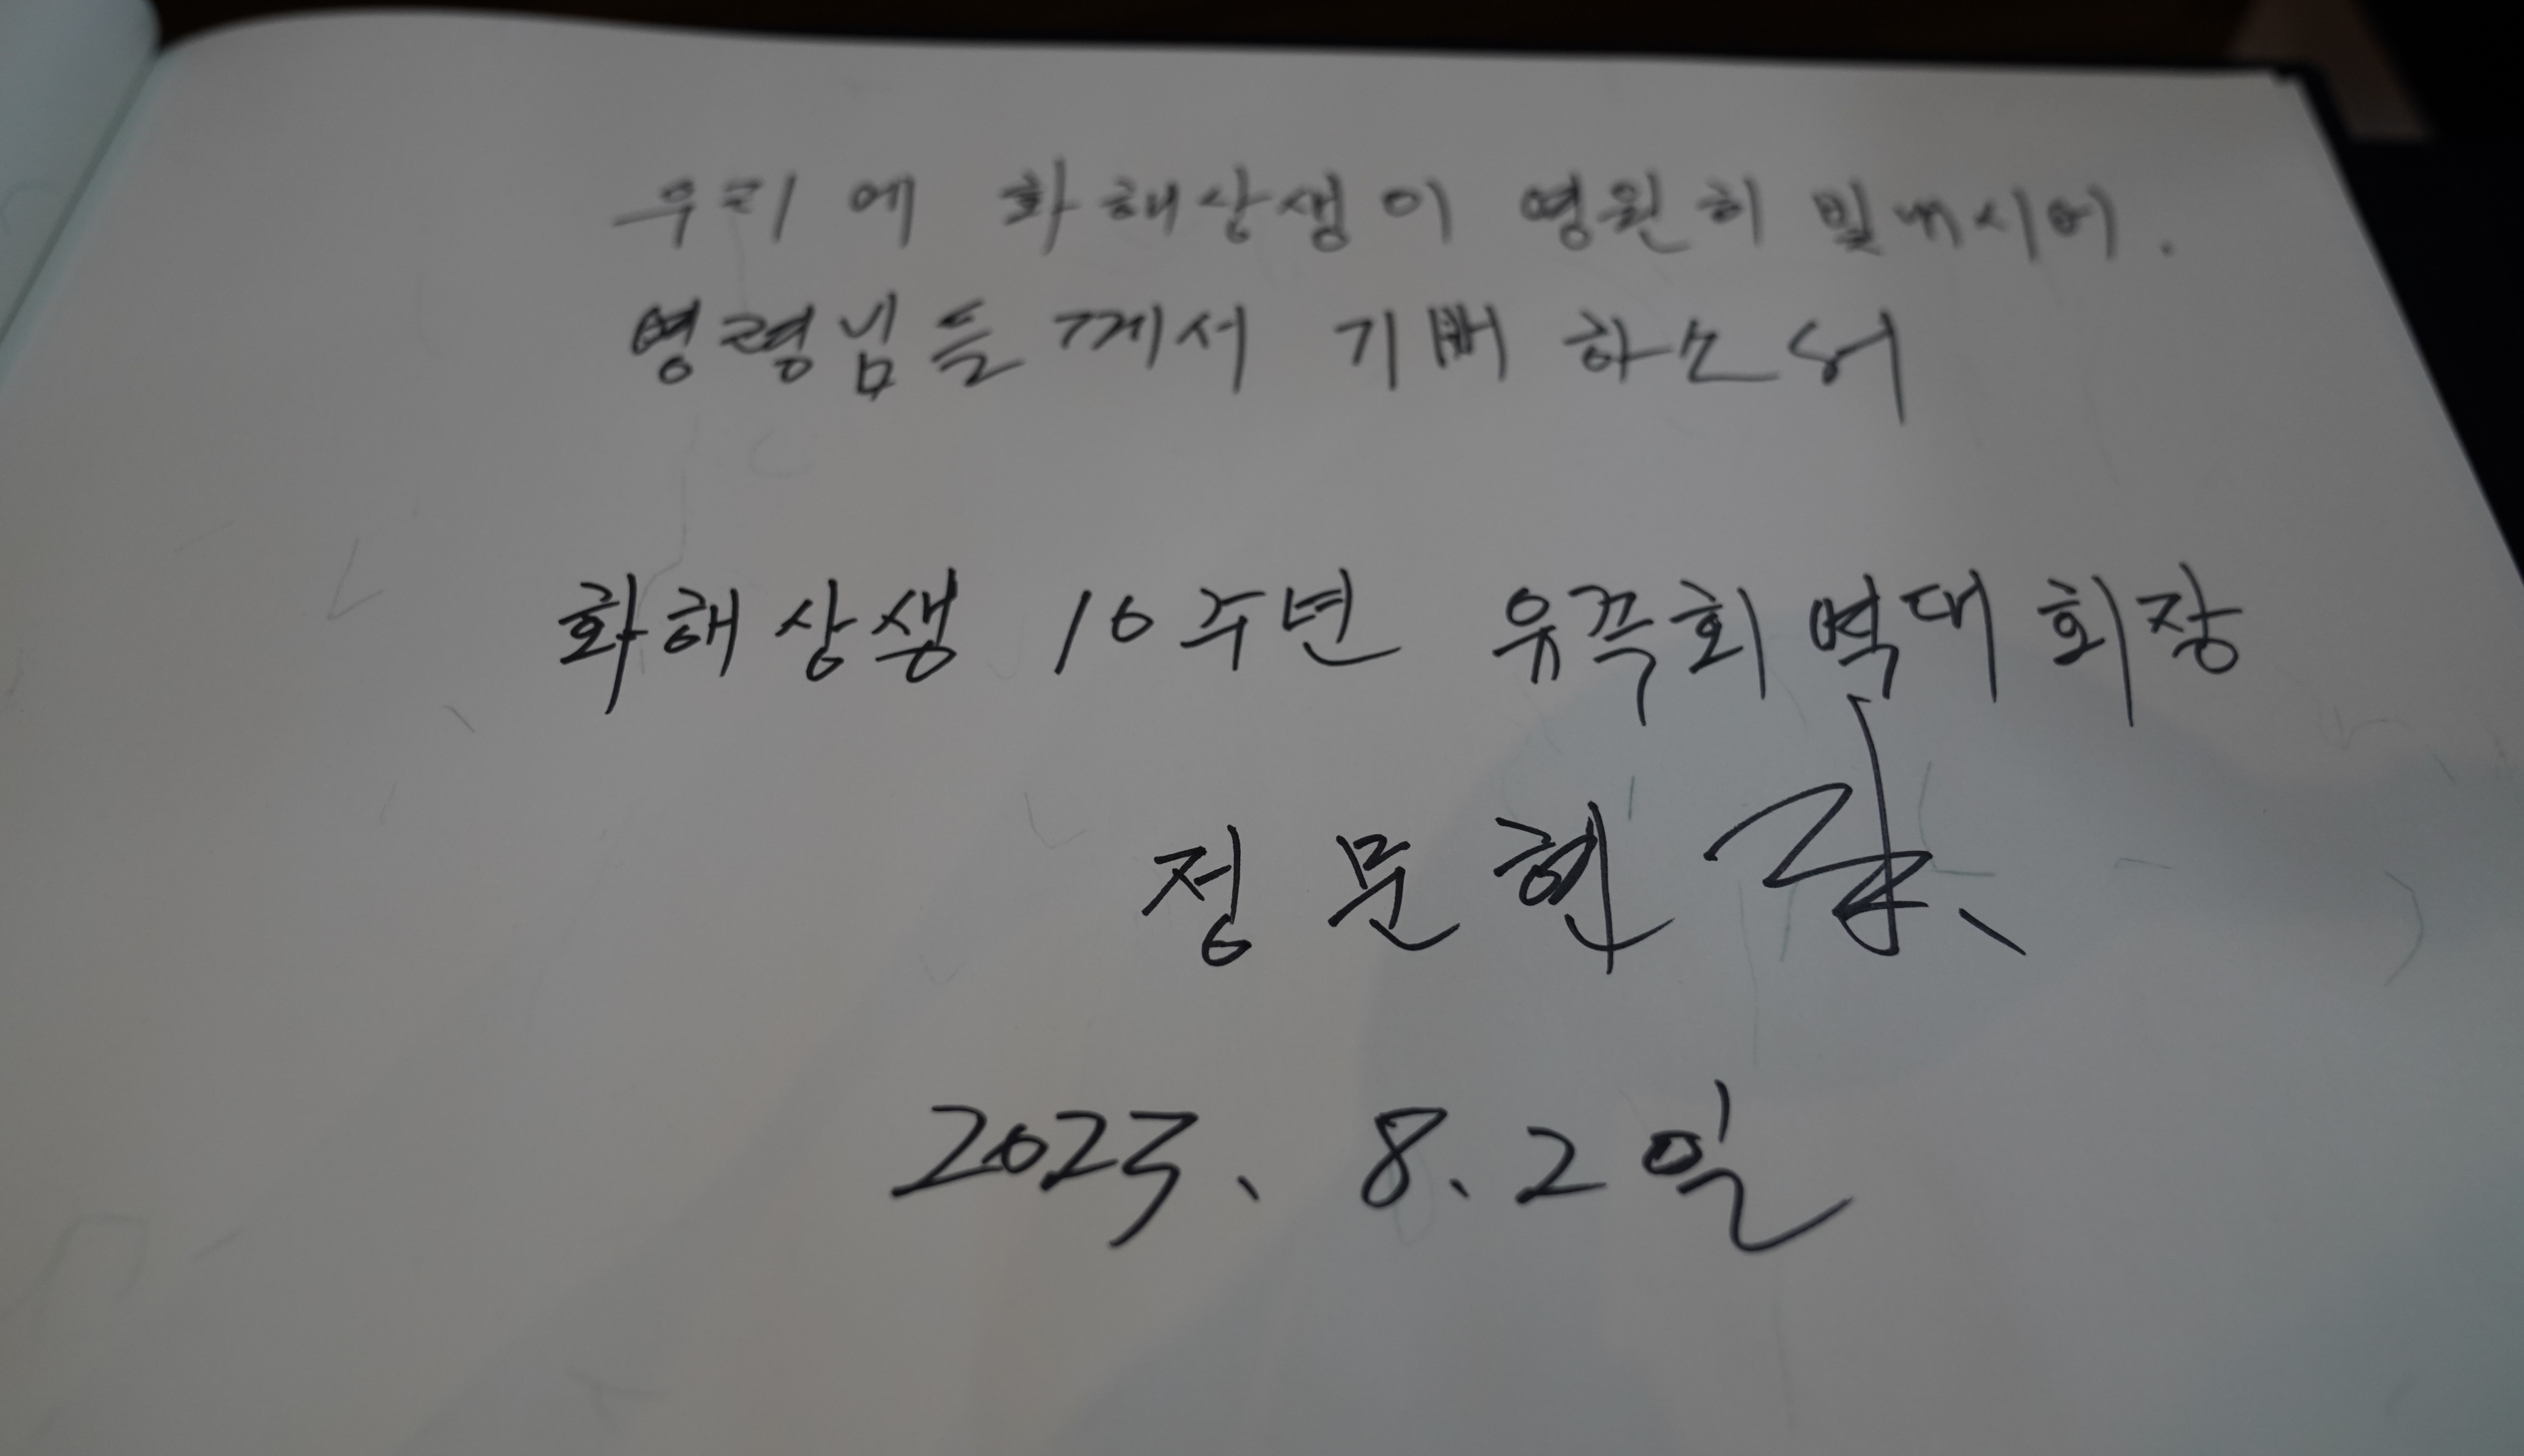 우리에 화해상생이 영원히 빛내시어.
영령님들께서 기뻐하소서
화해상생 10주년 유족회 역대 회장
정문현
2023. 8. 2일